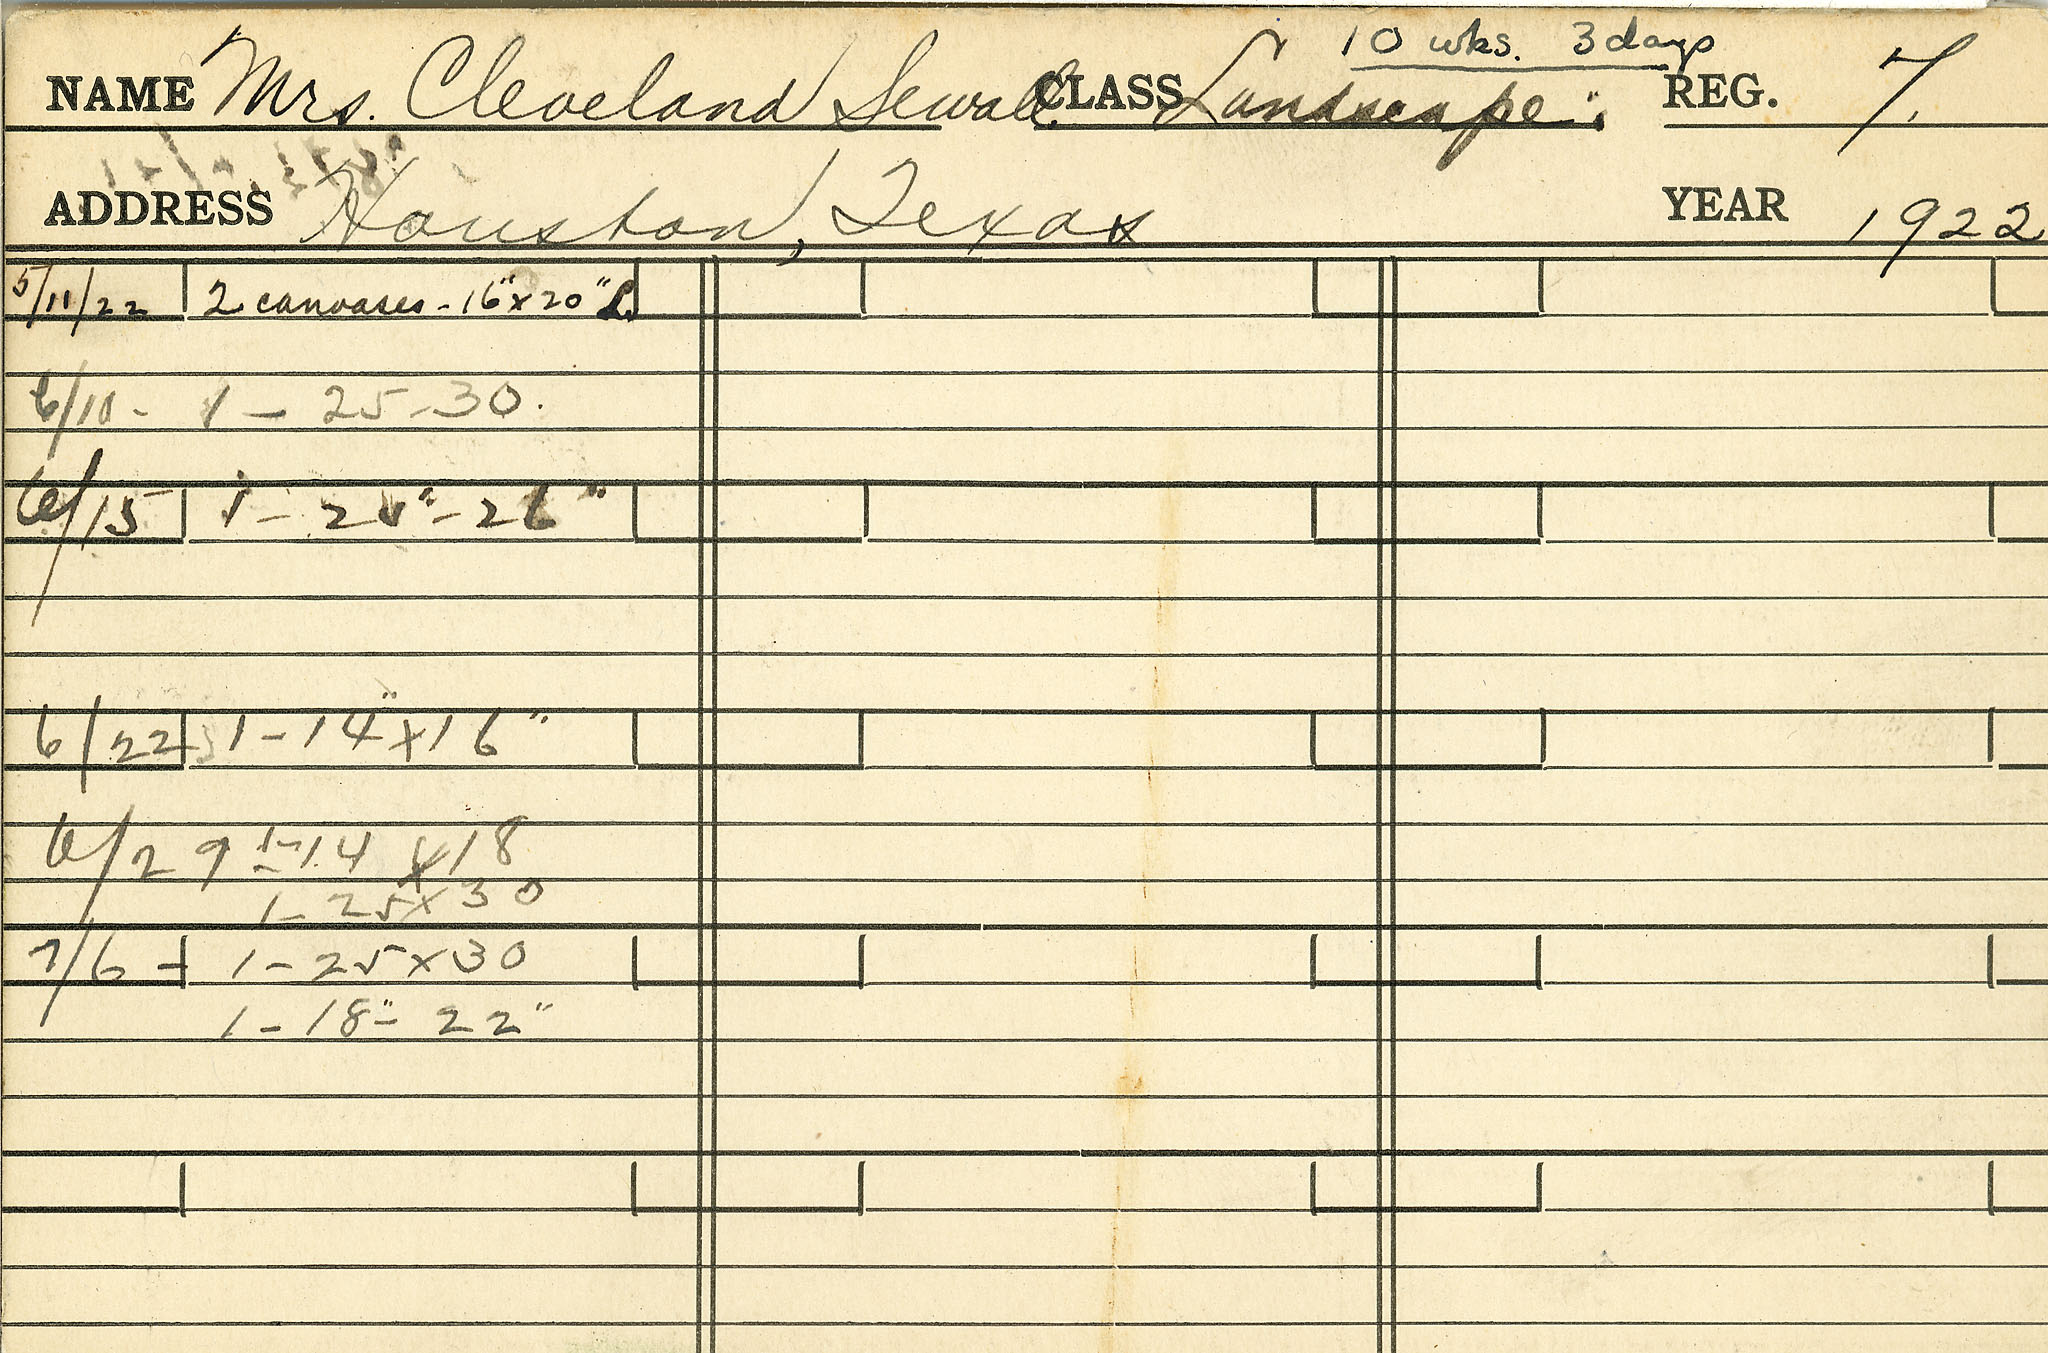 10 wks. 3 days
NAME Mrs. Cleveland Sewall CLASS Landscape. REG. 7.
ADDRESS Houston, Texas YEAR 1922
5/11/22 2 canvases - 16" x 20" L.
6/10 - 1 - 25 - 30.
6/15 1 - 26"
6/22 1 - 14" x 16"
6/29 1 - 14 x 18
1 - 25 x 30
7/6 - 1 - 25 x 30
1 - 18" - 22"